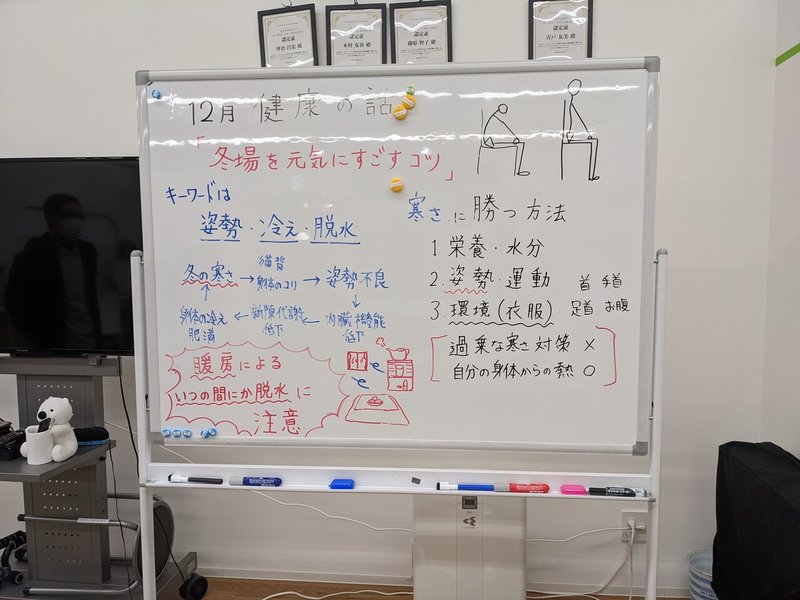 認定証
認定証
木村 夏香 殿
認定証
藤原 智子 殿
認定証
青戸 友美 殿
12月 健康の話
「冬場を元気にすごすコツ」
キーワードは
姿勢・冷え・脱水
冬の寒さ → 猫背 身体のコリ → 姿勢不良
↓
身体の冷え 肥満 ← 新陳代謝 低下 ← 内臓機能 低下
↑
暖房による
いつの間にか脱水に
注意
寒さに勝つ方法
1 栄養・水分
2. 姿勢・運動
3. 環境(衣服)
首 手首
足首 お腹
過乗な寒さ対策 ×
自分の身体からの熱 ○